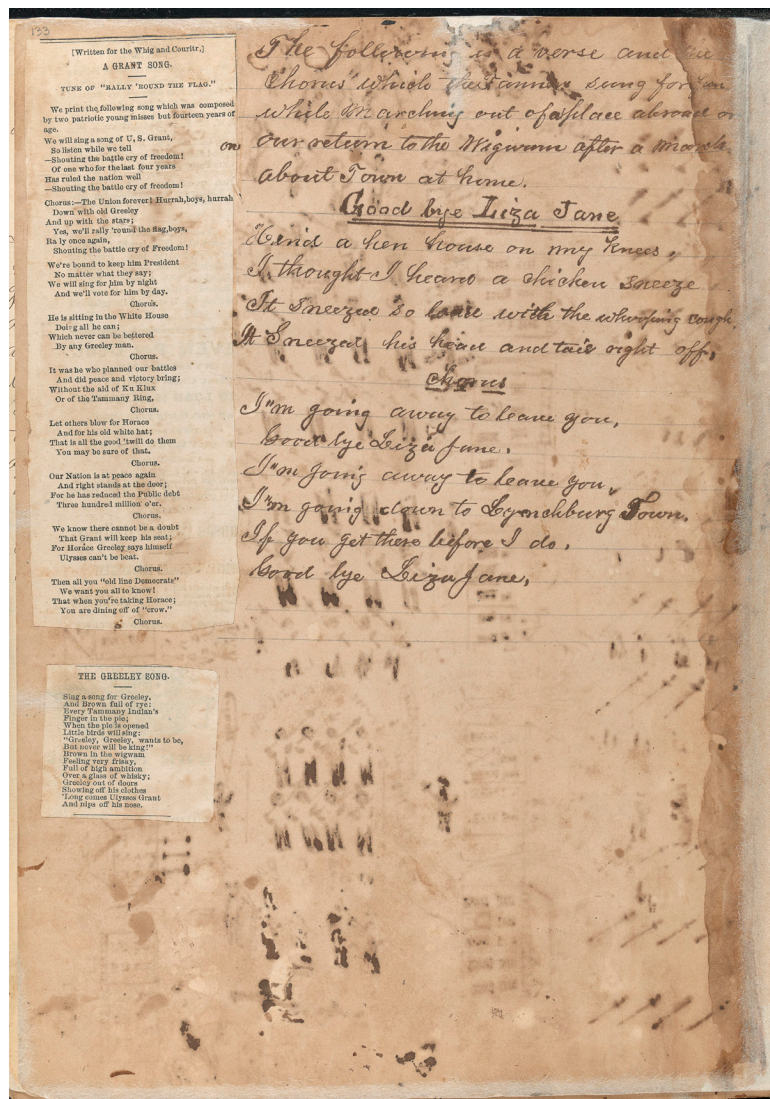 133
[Written for the Whig and Couritr.]
A GRANT SONG.
TUNE OF "RALLY 'ROUND THE FLAG."
We print the following song which was composed
by two patriotic young misses but fourteen years of
age.
We will sing a song of U, S. Grant,
So listen while we tell
—Shouting the battle cry of freedom!
Of one who for the last four years
Has ruled the nation well
—Shouting the battle cry of freedom!
Chorus:—The Union forever! Hurrah, boys, hurrah
Down with old Greeley
And up with the stars;
Yes, we'll rally 'round the flag, boys,
Ra ly once again,
Shouting the battle cry of Freedom!
We're bound to keep him President
No matter what they say;
We will sing for him by night
And we'll vote for him by day.
Chorus.
He is sitting in the White House
Doing all he can;
Which never can be bettered
By any Greeley man.
Chorus.
It was he who planned our battles
And did peace and victory bring;
Without the aid of Ku Klux
Or of the Tammany Ring,
Chorus.
Let others blow for Horace
And for his old white hat;
That is all the good 'twill do them
You may be sure of that.
Chorus.
Our Nation is at peace again
And right stands at the door;
For he has reduced the Public debt
Three hundred million o'er.
Chorus.
We know there cannot be a doubt
That Grant will keep his seat;
For Horace Greeley says himself
Ulysses can't be beat.
Chorus.
Then all you "old line Democrats"
We want you all to know!
That when you're taking Horace;
You are dining off of "crow."
Chorus.
THE GREELEY SONG.
Sing a song for Greeley,
And Brown full of rye;
Every Tammany Indian's
Finger in the pie;
When the pie is opened
Little birds will sing:
"Greeley, Greeley, wants to be,
But never will be king!"
Brown in the wigwam
Feeling very frisky,
Full of high ambition
Over a glass of whisky;
Greeley out of doors
Showing off his clothes
'Long comes Ulysses Grant
And nips off his nose.
The following is a verse and
Chorus which the Tanners sung for fun
while Marching out of a place abroad or
on our return to the Wigwam after a march
about Town at home.
Good bye Liza Jane
Behind a hen house on my knees,
I thought I heard a chicken sneeze
It sneezed so loud with the whooping cough,
It Sneezed his head and tail right off,
Chorus
I"m going away to leave you,
Good bye Liza Jane.
I"m going away to leave you,
I"m going down to Lynchburg Town.
If you get there before I do.
Good bye Liza Jane,